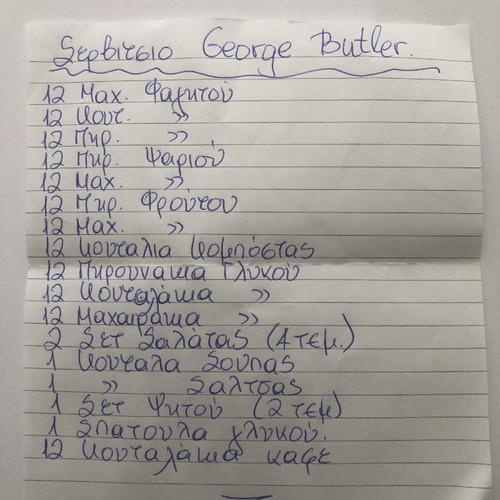 Σερβιτσιο George Butler.
12 Μαχ. Φαγητού
12 Κουτ. »
12 Πηρ. »
12 Πηρ. Ψαριού
12 Μαχ. »
12 Πηρ. Φρούτου
12 Μαχ. »
12 Κουταλια Κομπόστας
12 Πηρουνακια Γλυκού
12 Κουταλάκια »
12 Μαχαιράκια »
2 Σετ Σαλάτας (4 τεμ.)
1 Κουταλα Σούπας
1 » Σαλτσας
1 Σετ Ψητού (2 τεμ)
1 Σπατουλα γλυκού.
12 Κουταλάκια καφε